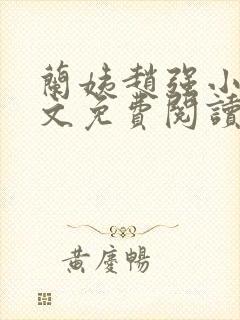 蘭姨趙强小
文免費閱讀
黃慶暢